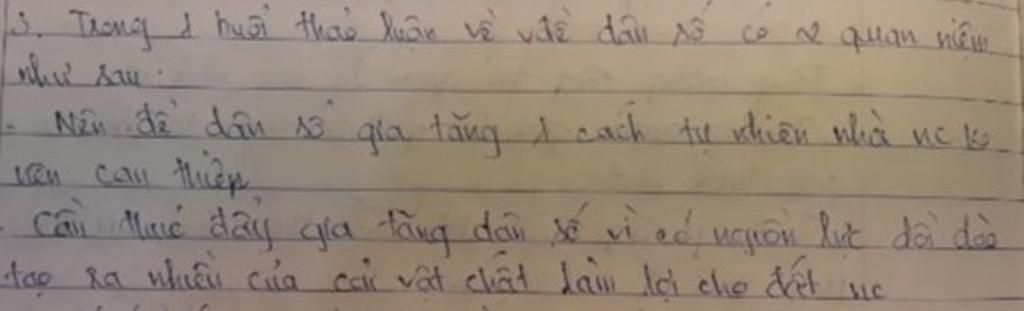 3. Trong 1 buổi thảo luận về vđề dân số có 2 quan niệm
như sau:
- Nên để dân số gia tăng 1 cách tự nhiên nhà nc ko
nên can thiệp
- Cần thúc đẩy gia tăng dân số vì có nguồn lực dồi dào
tạo ra nhiều của cải vật chất làm lợi cho đất nc